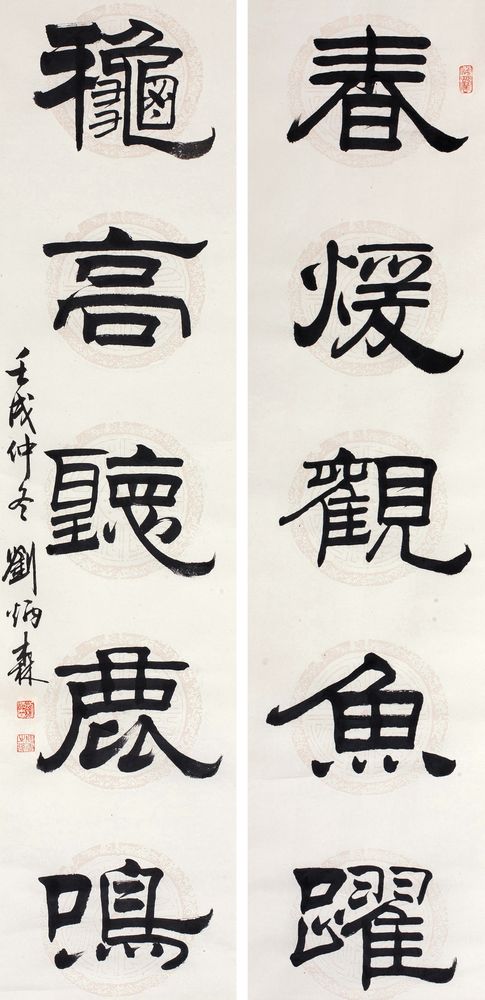 春煖觀魚躍
龝高聽鹿鳴
壬戌仲冬 劉炳森